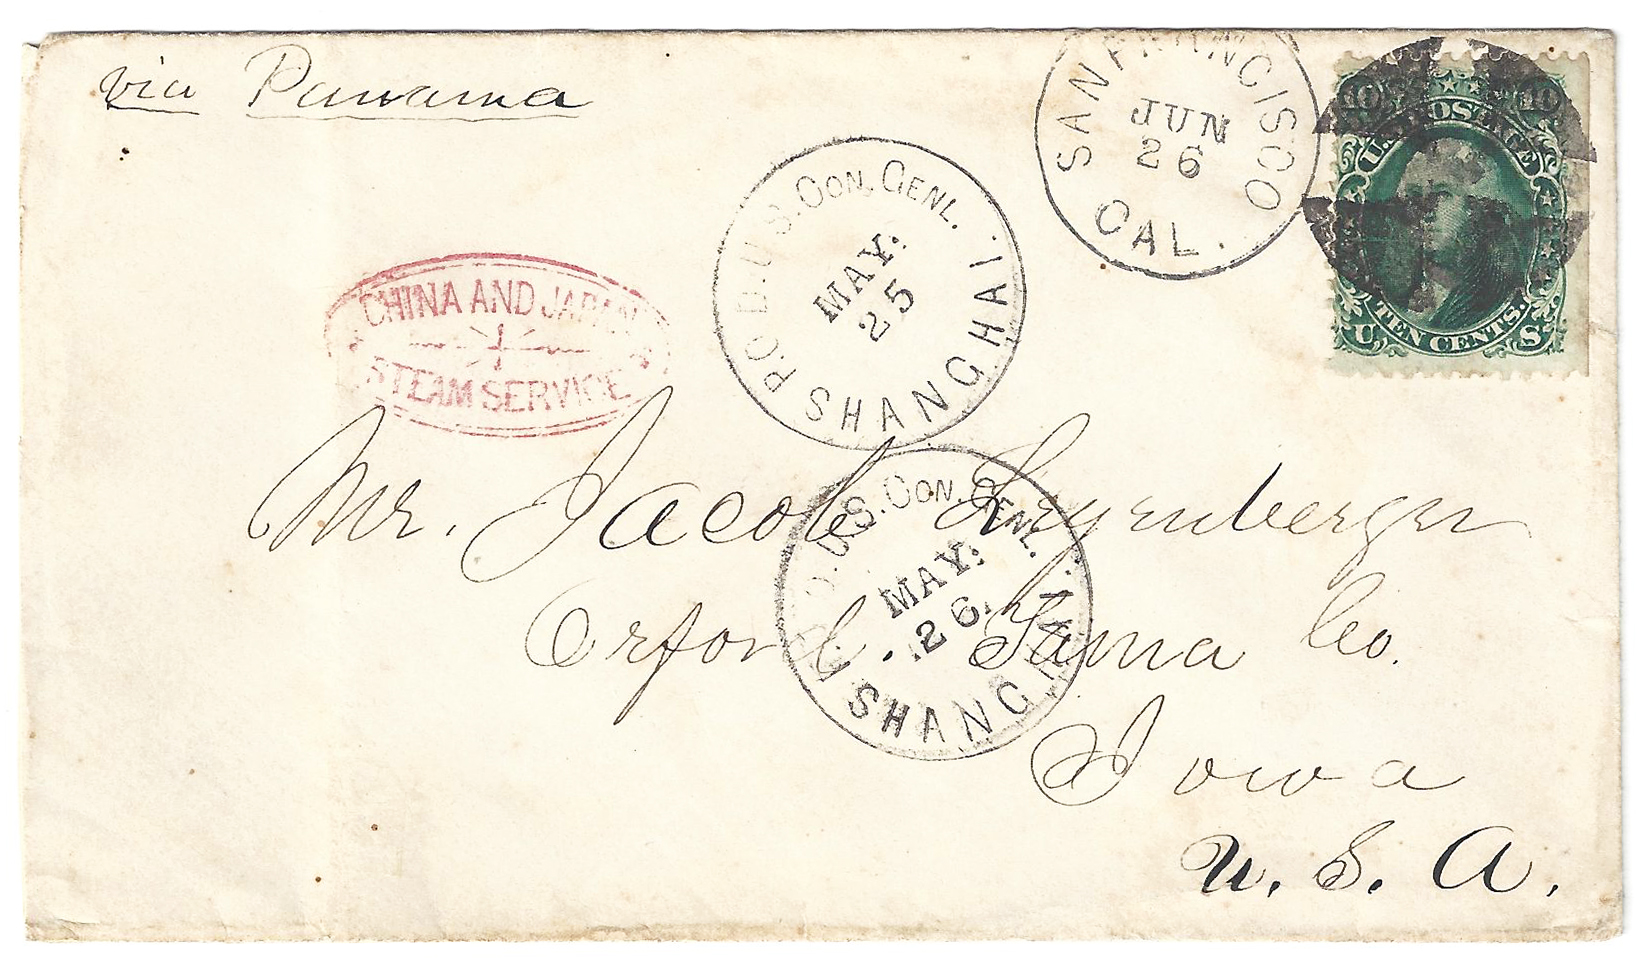 via Panama
SAN FRANCISCO
JUN
26
CAL.
10 10
U.S. POSTAGE
TEN CENTS.
U S
P.O.D.U.S. CON. GENL.
MAY:
25
SHANGHAI.
CHINA AND JAPAN
STEAM SERVICE
P.O.D.U.S. CON. GENL.
MAY:
26.
SHANGHAI.
Mr. Jacob
Orford. Tama Co.
Iowa
U. S. A.